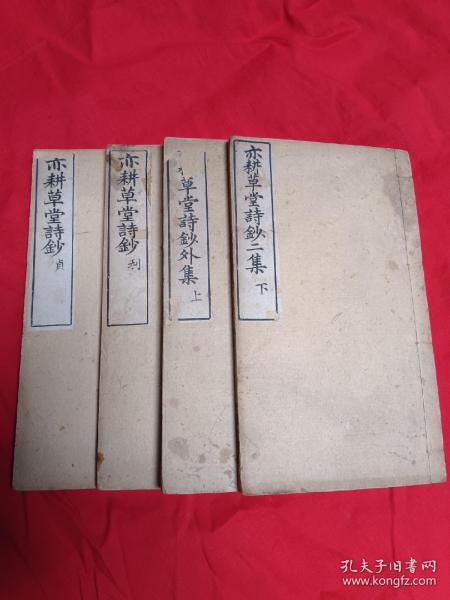 亦耕草堂詩鈔二集 下
草堂詩鈔外集 上
亦耕草堂詩鈔 利
亦耕草堂詩鈔 貞
孔夫子旧书网
www.kongfz.com